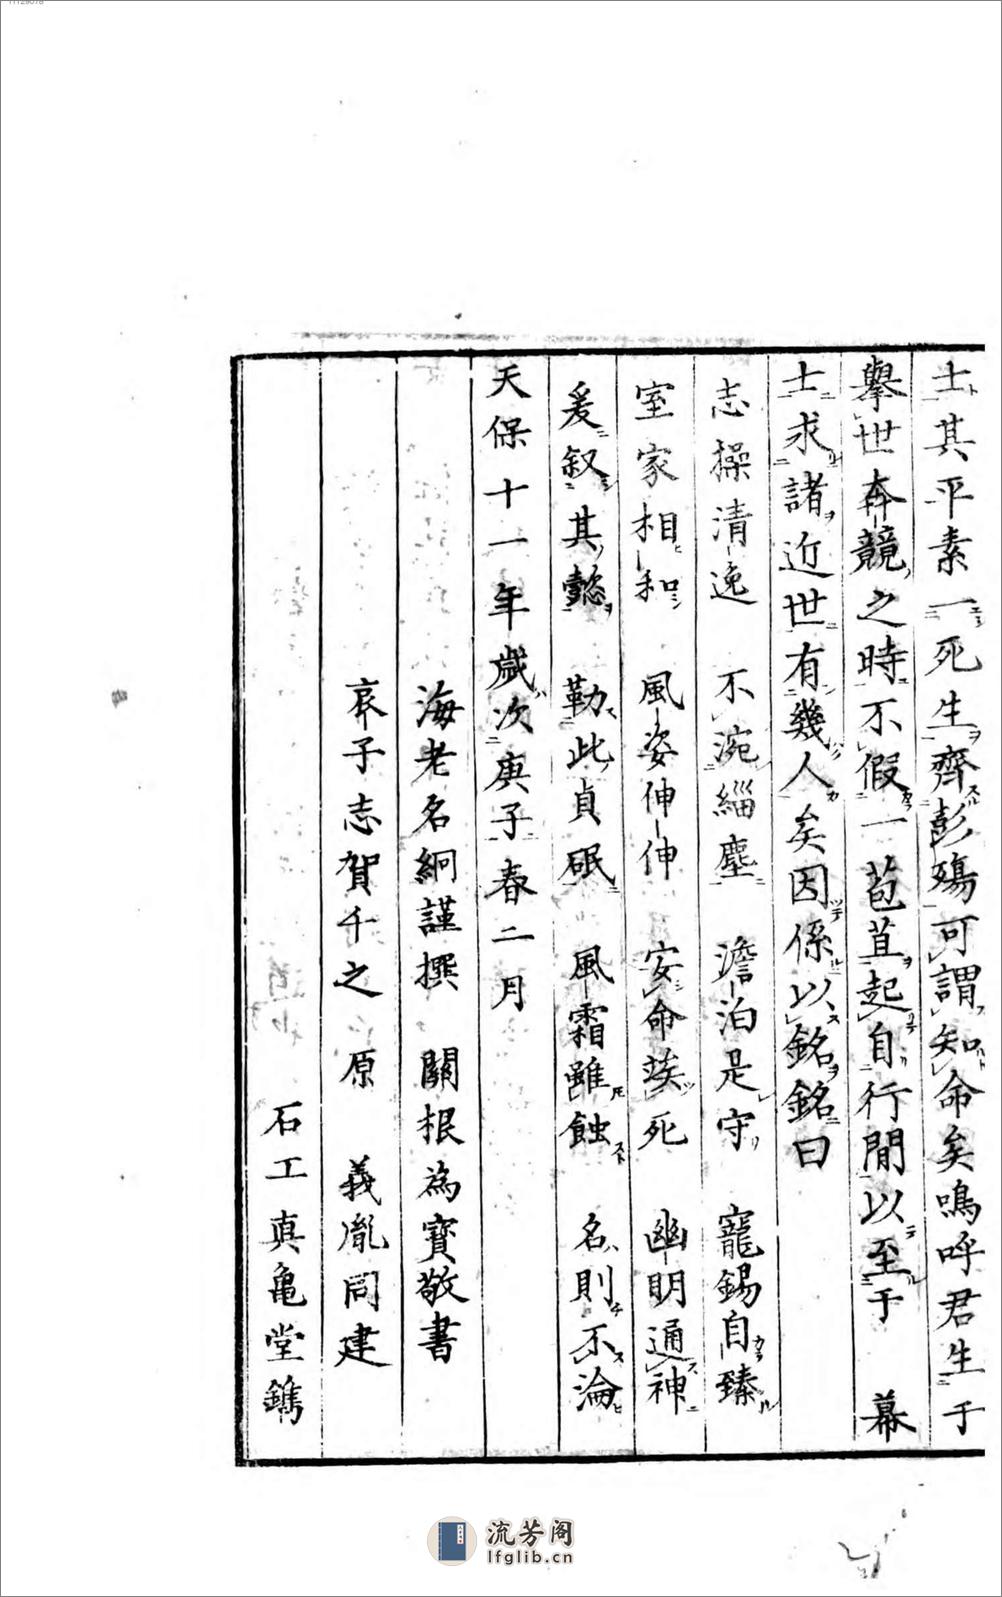 士其平素一死生齊彭殤可謂知命矣嗚呼君生于
擧世奔競之時不假一苞苴起自行間以至于　幕
士求諸近世有幾人矣因係以銘銘曰
志操清逸　不涴緇塵　澹泊是守　寵錫自臻
室家相和　風姿伸伸　安命竢死　幽明通神
爰叙其懿　勒此貞砥　風霜雖蝕　名則不淪
天保十一年歲次庚子春二月
海老名絅謹撰　關根為寶敬書
哀子志賀千之　原　義胤同建
石工真亀堂鐫
流芳阁
lfglib.cn